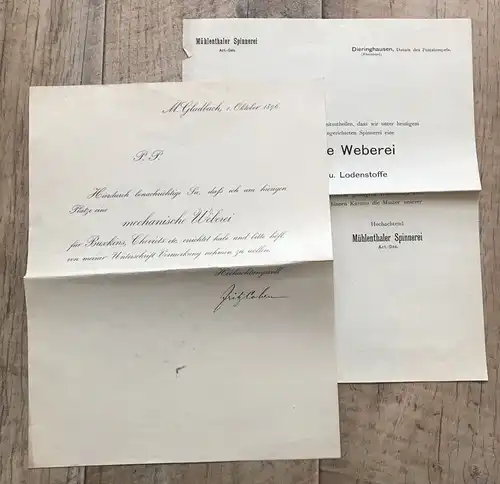 M. Gladbach, 1. Oktober 1896.
P. P.
Hierdurch benachrichtige Sie, daß ich am hiesigen
Platze eine
mechanische Weberei
für Buxkins, Cheviots etc. errichtet habe und bitte höfl.
von meiner Unterschrift Vormerkung nehmen zu wollen.
Hochachtungsvoll
Fritz Cohen
Mühlenthaler Spinnerei
Act.-Ges.
Dieringhausen, Datum des Poststempels.
(Rheinland)
mitzutheilen, dass wir unter heutigem
eingerichteten Spinnerei eine
e Weberei
u. Lodenstoffe
Ihnen Kurzem die Muster unserer
Hochachtend
Mühlenthaler Spinnerei
Act.-Ges.